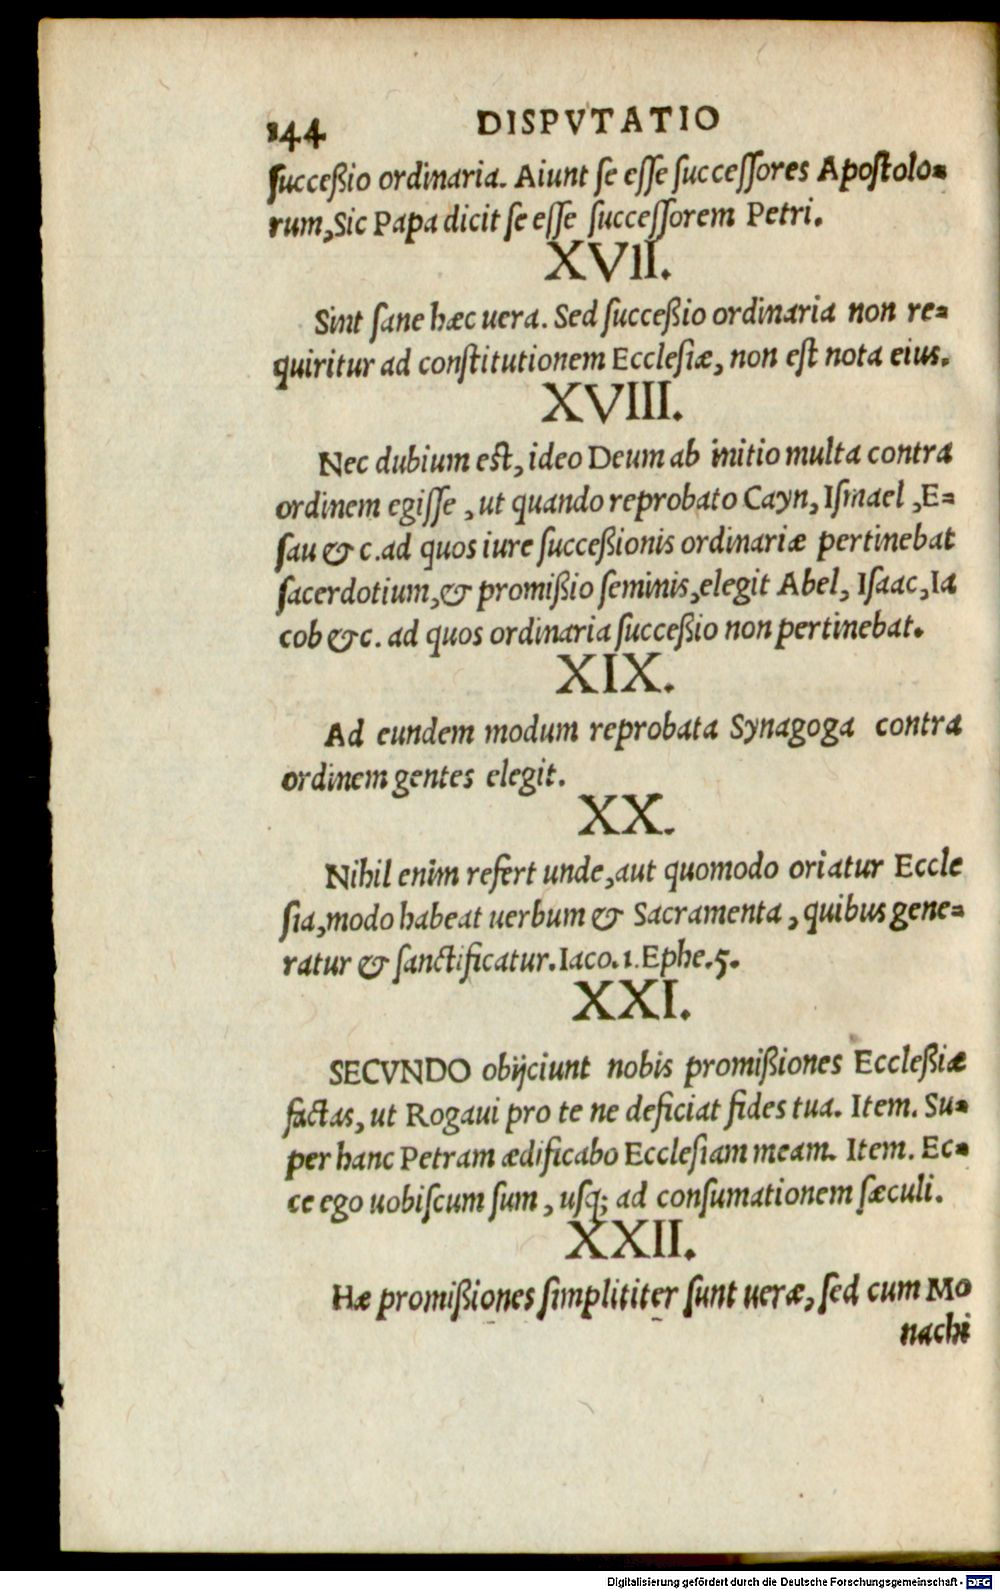 144 DISPVTATIO
ſucceßio ordinaria. Aiunt ſe eſſe ſucceſſores Apoſtolo-
rum, Sic Papa dicit ſe eſſe ſucceſſorem Petri.
XVII.
Sint ſane hæc uera. Sed ſucceßio ordinaria non re-
quiritur ad conſtitutionem Eccleſiæ, non eſt nota eius.
XVIII.
Nec dubium eſt, ideo Deum ab initio multa contra
ordinem egiſſe, ut quando reprobato Cayn, Iſmael, E-
ſau & c. ad quos iure ſucceßionis ordinariæ pertinebat
ſacerdotium, & promißio ſeminis, elegit Abel, Iſaac, Ia
cob & c. ad quos ordinaria ſucceßio non pertinebat.
XIX.
Ad eundem modum reprobata Synagoga contra
ordinem gentes elegit.
XX.
Nihil enim refert unde, aut quomodo oriatur Eccle
ſia, modo habeat uerbum & Sacramenta, quibus gene-
ratur & ſanctificatur. Iaco. 1. Ephe. 5.
XXI.
SECVNDO obijciunt nobis promißiones Eccleßiæ
factas, ut Rogaui pro te ne deficiat fides tua. Item. Su-
per hanc Petram ædificabo Eccleſiam meam. Item. Ec-
ce ego uobiſcum ſum, uſq; ad conſumationem ſæculi.
XXII.
Hæ promißiones ſimplititer ſunt ueræ, ſed cum Mo
nachi
Digitalisierung gefördert durch die Deutsche Forschungsgemeinschaft - DFG